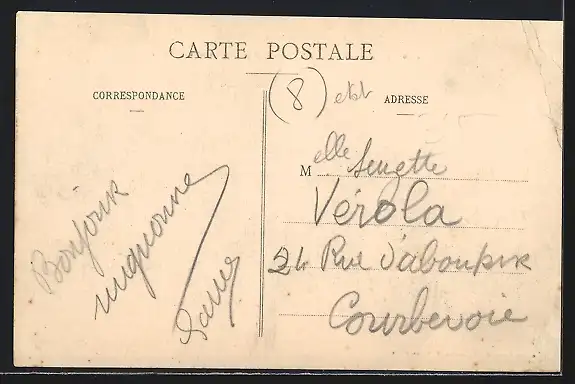 CARTE POSTALE
CORRESPONDANCE
ADRESSE
(8)
Bonjour
mignonne
Melle Suzette
Vérola
24 Rue
Courbevoie